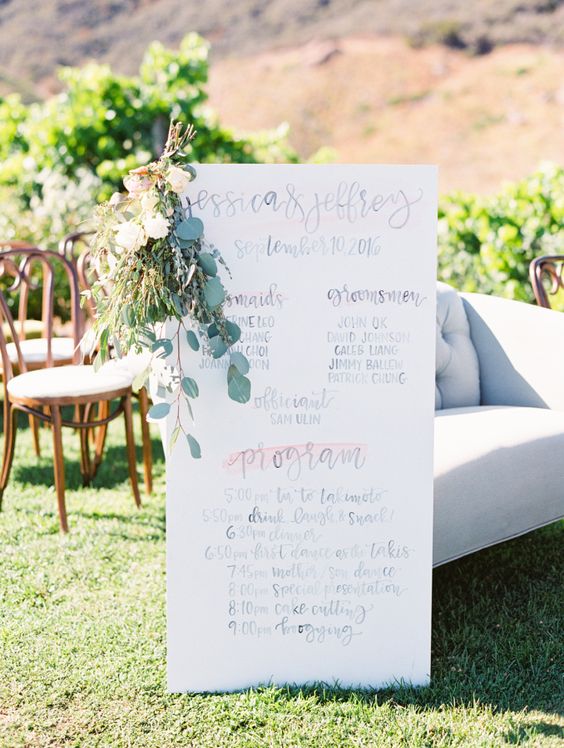 jessica & jeffrey
september 10, 2016
groomsmen
JOHN OK
CHANG DAVID JOHNSON
CHOI CALEB LIANG
JIMMY BALLEW
PATRICK CHUNG
officiant
SAM ULIN
program
5:00pm "tu" to takimoto
5:50pm drink, laugh, & snack!
6:30pm dinner
6:50pm first dance as the Takis
7:45pm mother/son dance
8:00pm special presentation
8:10pm cake cutting
9:00pm boogying